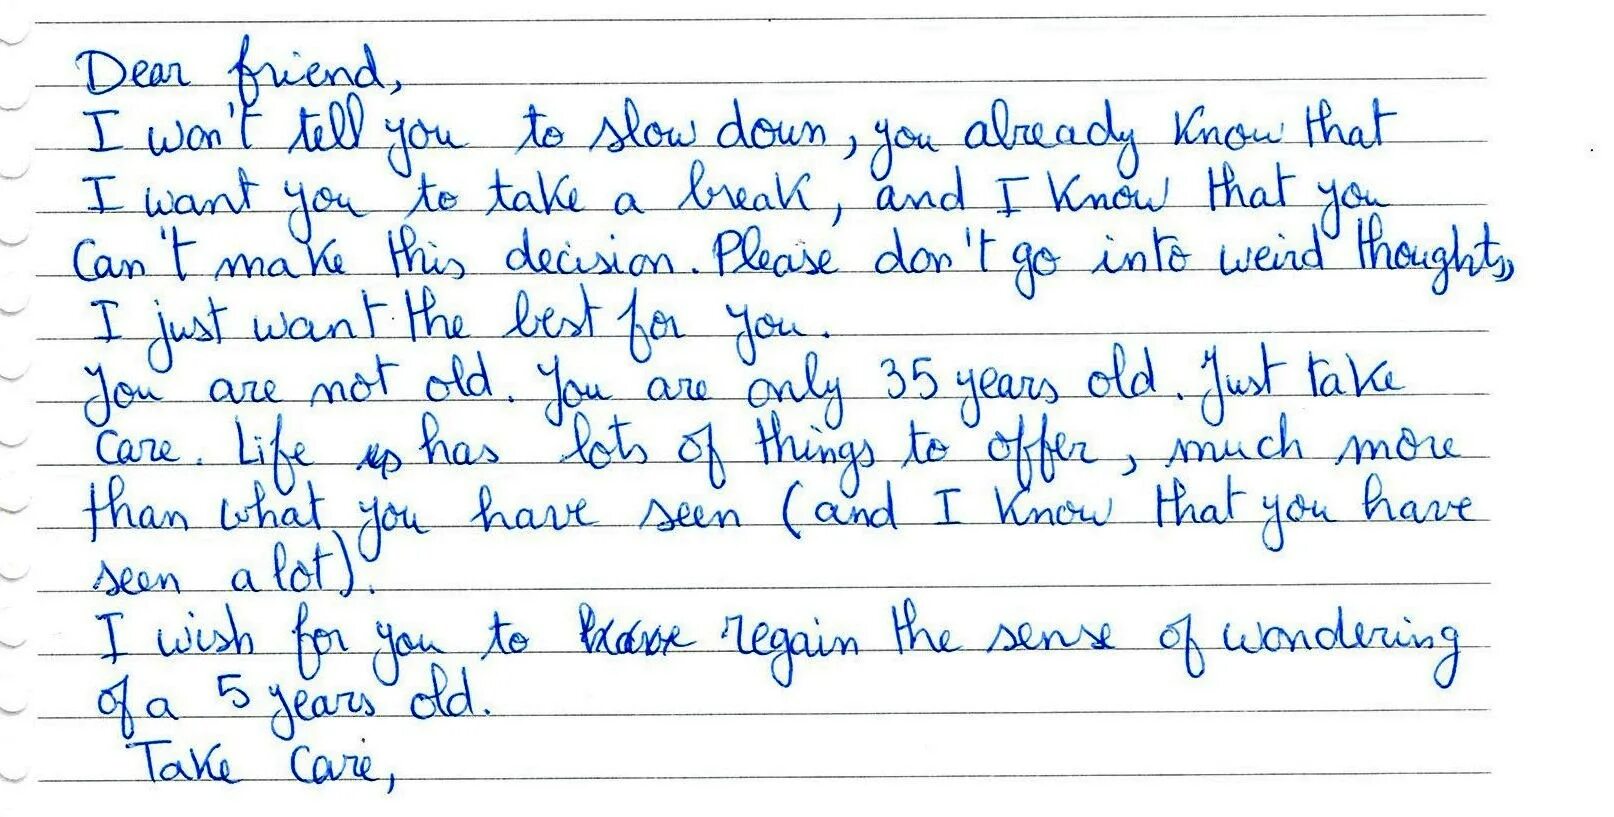 Dear friend,
I won't tell you to slow down, you already know that
I want you to take a break, and I know that you
can't make this decision. Please don't go into weird thoughts,
I just want the best for you.
You are not old. You are only 35 years old. Just take
care. Life has lots of things to offer, much more
than what you have seen (and I know that you have
seen a lot).
I wish for you to regain the sense of wondering
of a 5 years old.
Take care,